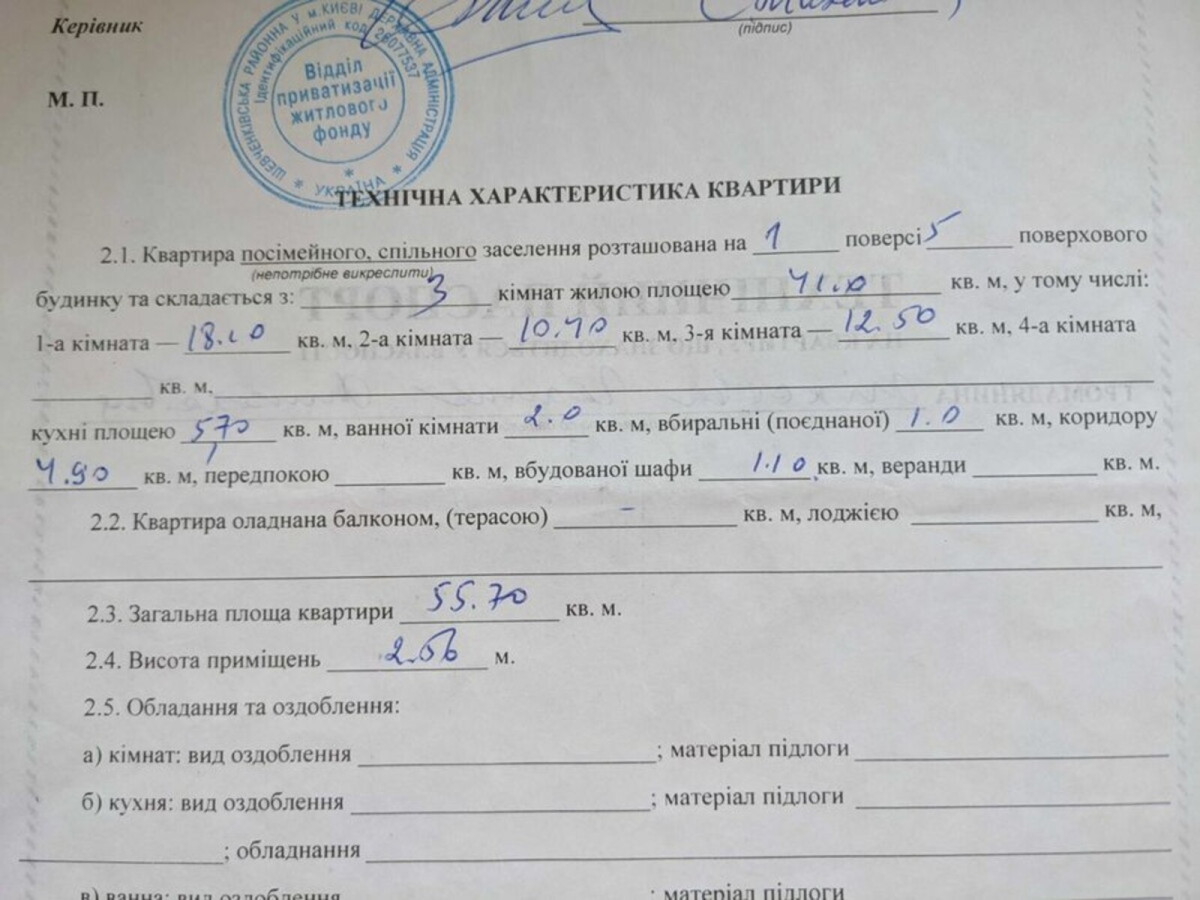 Керівник
(підпис)
М. П.
ШЕВЧЕНКІВСЬКА РАЙОННА У М.КИЄВІ ДЕРЖАВНА АДМІНІСТРАЦІЯ
Ідентифікаційний код 26077537
Відділ
приватизації
житлового
фонду
* УКРАЇНА *
ТЕХНІЧНА ХАРАКТЕРИСТИКА КВАРТИРИ
2.1. Квартира посімейного, спільного заселення розташована на 1 поверсі 5 поверхового
(непотрібне викреслити)
будинку та складається з: 3 кімнат жилою площею 41.0 кв. м, у тому числі:
1-а кімната — 18.10 кв. м, 2-а кімната — 10.40 кв. м, 3-я кімната — 12.50 кв. м, 4-а кімната
кв. м,
кухні площею 5,70 кв. м, ванної кімнати 2.0 кв. м, вбиральні (поєднаної) 1.0 кв. м, коридору
4.90 кв. м, передпокою кв. м, вбудованої шафи 1.10 кв. м, веранди кв. м.
2.2. Квартира оладнана балконом, (терасою) – кв. м, лоджією кв. м,
2.3. Загальна площа квартири 55.70 кв. м.
2.4. Висота приміщень 2.56 м.
2.5. Обладання та оздоблення:
а) кімнат: вид оздоблення ; матеріал підлоги
б) кухня: вид оздоблення ; матеріал підлоги
; обладнання
в) ванна: вид оздоблення ; матеріал підлоги